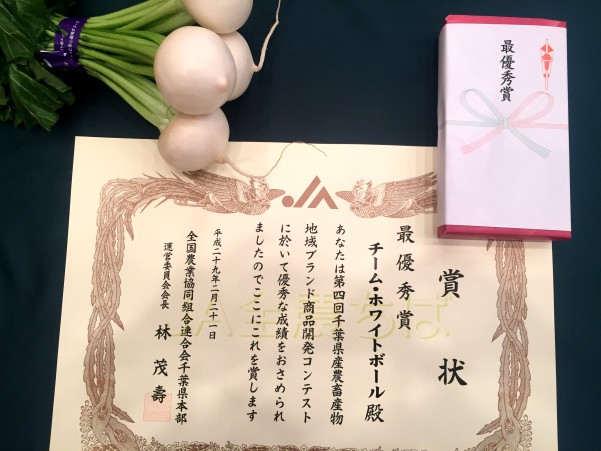 賞状
最優秀賞
チーム・ホワイトボール殿
あなたは第四回千葉県産農畜産物
地域ブランド商品開発コンテスト
に於いて優秀な成績をおさめられ
ましたのでここにこれを賞します
平成二十九年二月二十一日
全国農業協同組合連合会千葉県本部
運営委員会会長 林茂壽
JA全農ちば
最優秀賞